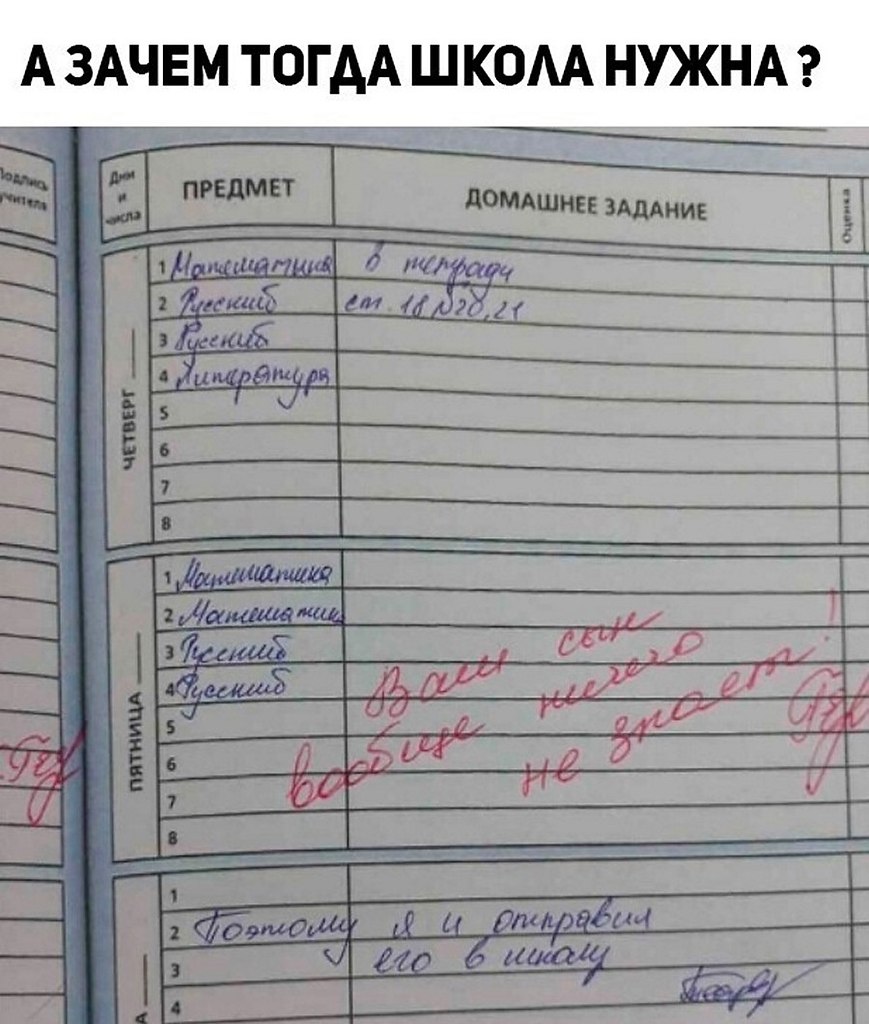 А ЗАЧЕМ ТОГДА ШКОЛА НУЖНА ?
Подпись
учителя
Дни
и
числа
ПРЕДМЕТ
ДОМАШНЕЕ ЗАДАНИЕ
Оценка
ЧЕТВЕРГ
1 Математика в тетради
2 Русский ст. 18 №20,21
3 Русский
4 Литература
5
6
7
8
ПЯТНИЦА
1 Математика
2 Математик
3 Русский
4 Русский
5
6
7
8
Ваш сын
вообще ничего
не знает!
1
2 Поэтому я и отправил
3 его в школу
4